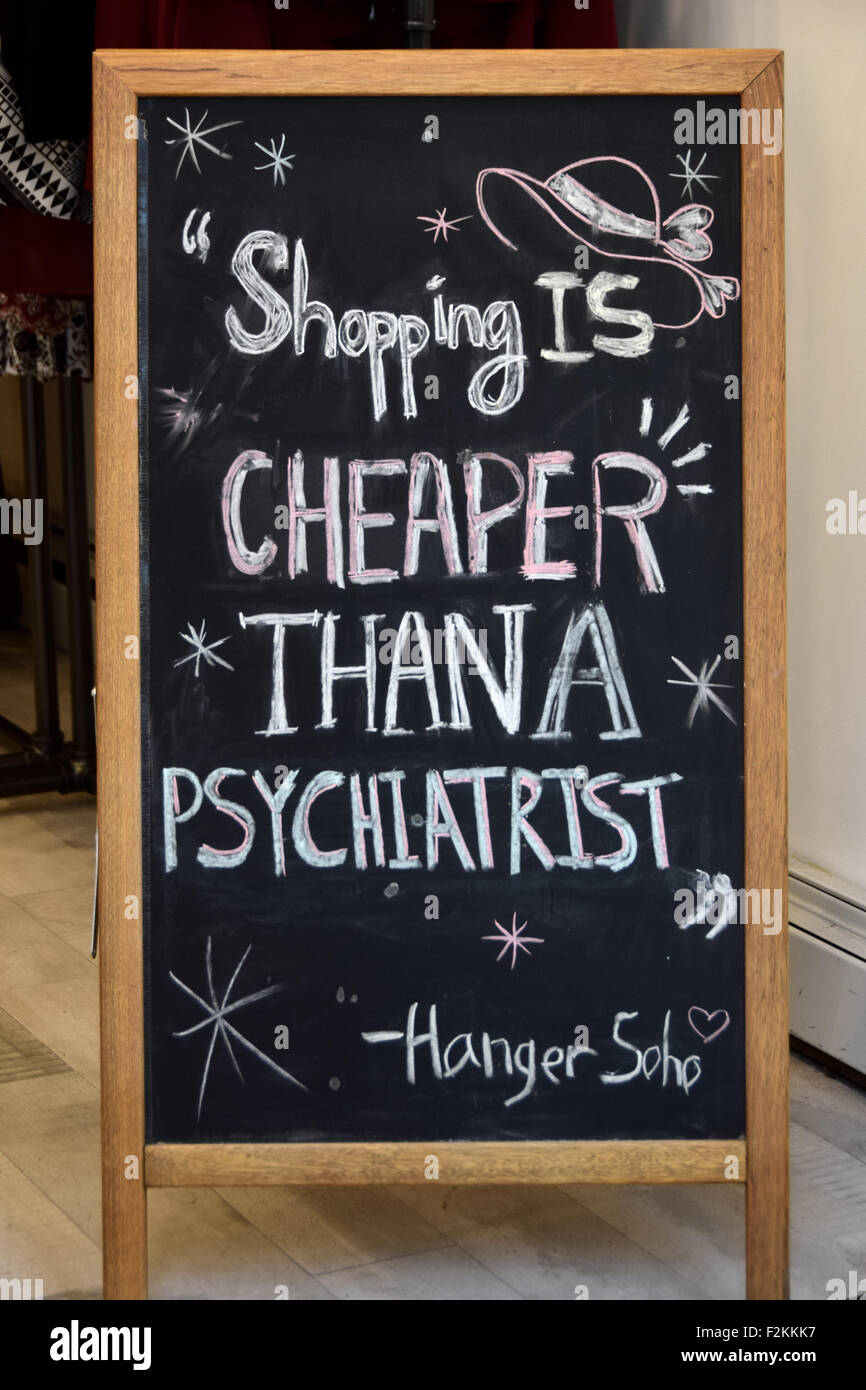 “Shopping IS
CHEAPER
THAN A
PSYCHIATRIST”
-Hanger Soho
alamy
Image ID: F2KKK7
www.alamy.com